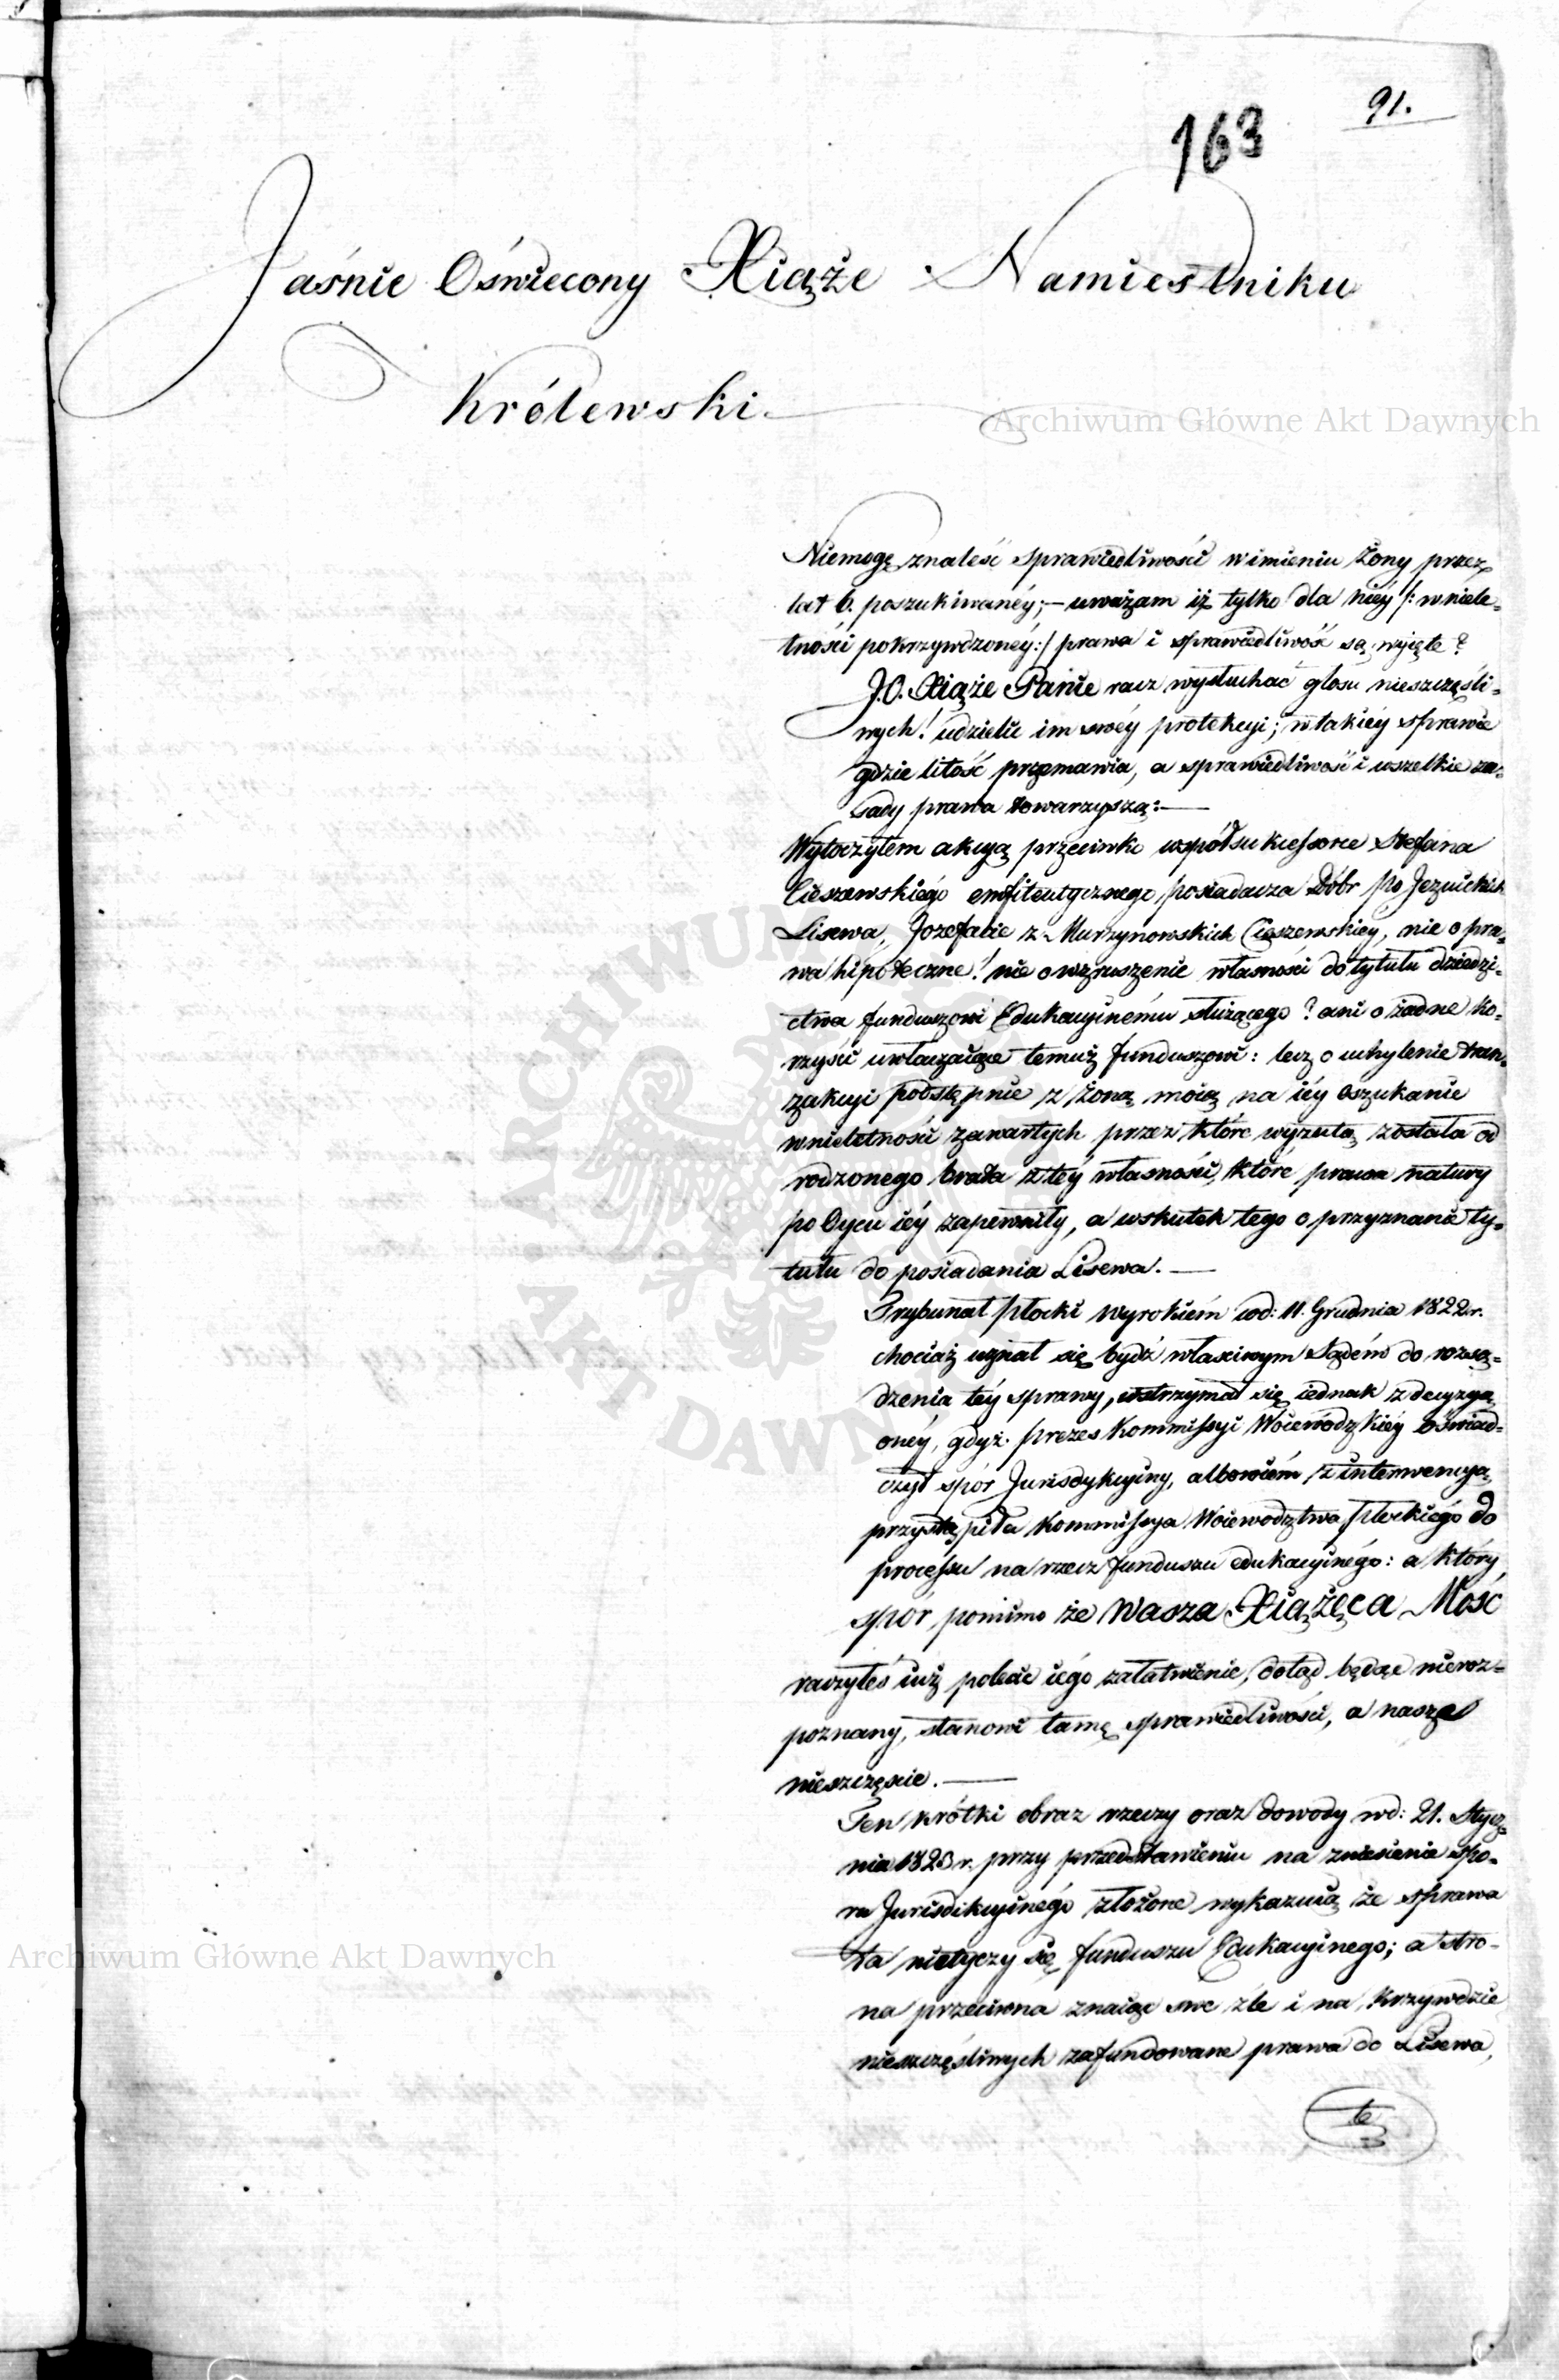 91.
163
Jaśnie Oświecony Xiąże Namiestniku
Królewski.
Archiwum Główne Akt Dawnych
Niemogę znaleść sprawiedliwości w imieniu Żony przez
lat 6. poszukiwanéy;– uważam iż tylko dla niéy /: w niele-
tności pokrzywdzonéy:/ prawa i sprawiedliwość są wyięte?
J.O. Xiąże Panie racz wysłuchać głosu nieszczęśli-
wych! udzielić im swéy protekcyi; w takiéy sprawie
gdzie litość przemawia, a sprawiedliwość i wszelkie za-
sady prawa towarzyszą:—
Wytoczyłem akcyą przeciwko współsukcessorce Stefana
Cieszewskiégo emfiteutycznego posiadacza Dóbr po Jezuickich
Lisewa, Jozefacie z Murzynowskich Cieszewskiey, nie o pra-
wa hipoteczne! nie o wzruszenie własności do tytułu dziedzi-
ctwa funduszowi Edukacyinému służącego? ani o żadne ko-
rzyści uwłaczaiące temuż funduszowi: lecz o uchylenie tran-
zakcyi podstępnie z żoną moią na iéy oszukanie
w nieletności zawartych przez które wyzutą została od
rodzonego brata z téy własności, które prawa natury
po Oycu iéy zapewniły, a wskutek tego o przyznanie ty-
tułu do posiadania Lisewa.—
Trybunał Płocki wyrokiém w d: 11. Grudnia 1822 r.
chociaż uznał się bydź właściwym Sądém do rozsą-
dzenia téy sprawy, wstrzymał się iednak z decyzyą
onéy, gdyż Prezes Kommissyi Woiewódzkiéy oświad-
czył spór Jurisdykcyiny, albowiém z interwencyą
przystąpiła Kommissya Woiewodztwa Płockiégo do
processu na rzecz funduszu edukacyinégo: a który
spór pomimo że Wasza Xiążęca Mość
raczyłeś iuż polecić iégo załatwienie, dotąd będąc nieroz-
poznany, stanowi tamę sprawiedliwości, a nasze
nieszczęście.—
Ten krótki obraz rzeczy oraz dowody w d: 21. Stycz-
nia 1823 r. przy przedstawieniu na zniesienie spo-
ru Jurisdikcyinégo złożone wykazuią że sprawa
ta nietyczy się funduszu Edukacyinego; a stro-
na przeciwna znaiąc swe źle i na krzywdzie
nieszczęśliwych zafundowane prawa do Lisewa,
te
Archiwum Główne Akt Dawnych
ARCHIWUM
AKT DAWNYCH